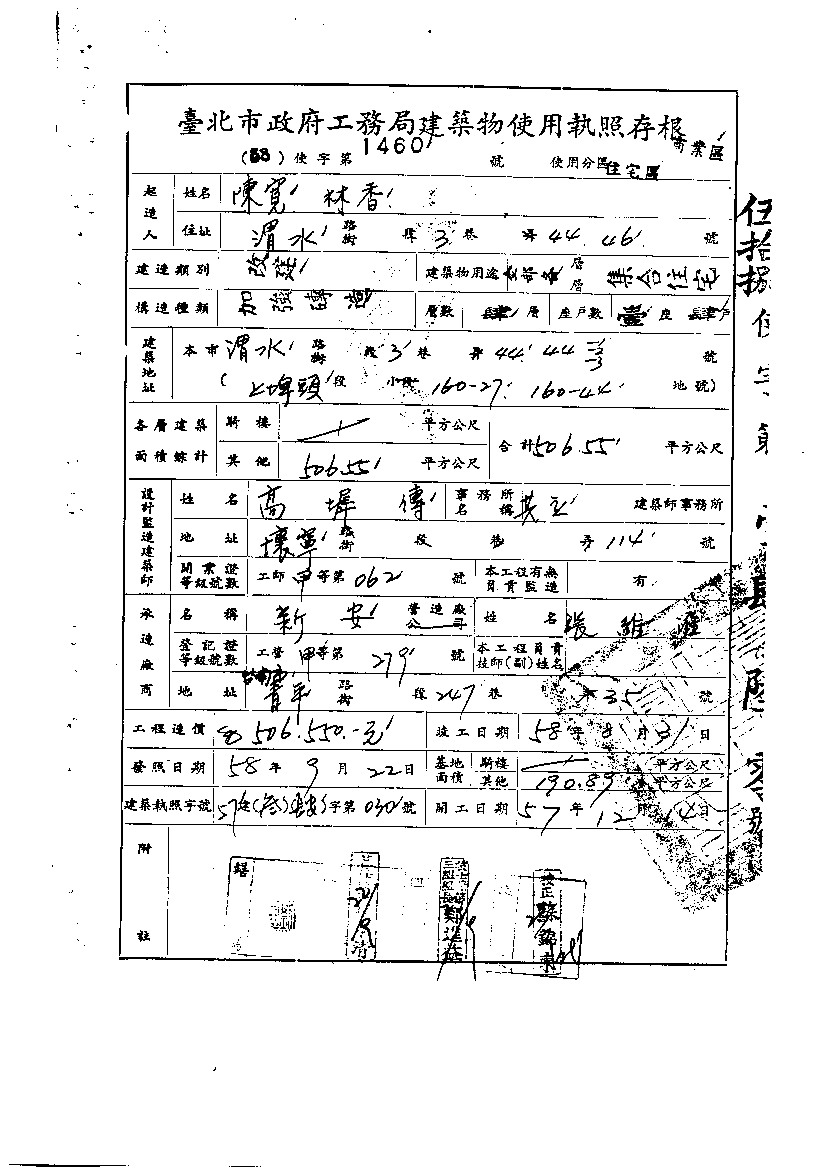 臺北市政府工務局建築物使用執照存根
商業區
(58)使字第1460號 使用分區住宅區
起造人 姓名 陳寬 林香
住址 渭水路街 段3巷 弄44.46 號
建造類別 改建 建築物用途 層層 集合住宅
構造種類 加強磚造 層數 肆層 座戶數 壹座 肆戶
建築地址 本市渭水路街 段3巷 弄44.44 號
(上埤頭段 小段160-27.160-44地號)
各層建築面積綜計 騎樓 平方公尺 合計506.55平方公尺
其他 506.55 平方公尺
設計監造建築師 姓名 高墀傳 事務所名稱 建築師事務所
地址 懷寧路街 段 巷 弄114號
開業證等級號數 工師甲等第062號 本工程有無負責監造 有
承造廠商 名稱 新安 營造廠公司 姓名 張維
登記證等級號數 工營甲等第279號 本工程負責技師(副)姓名
地址 路街 段247巷 弄35號
工程造價 506.550.-元 竣工日期 58年8月31日
發照日期 58年9月22日 基地面積 騎樓 平方公尺
其他 190.89平方公尺
建築執照字號 57 字第030號 開工日期 57年12月14日
附註
伍拾捌使字第